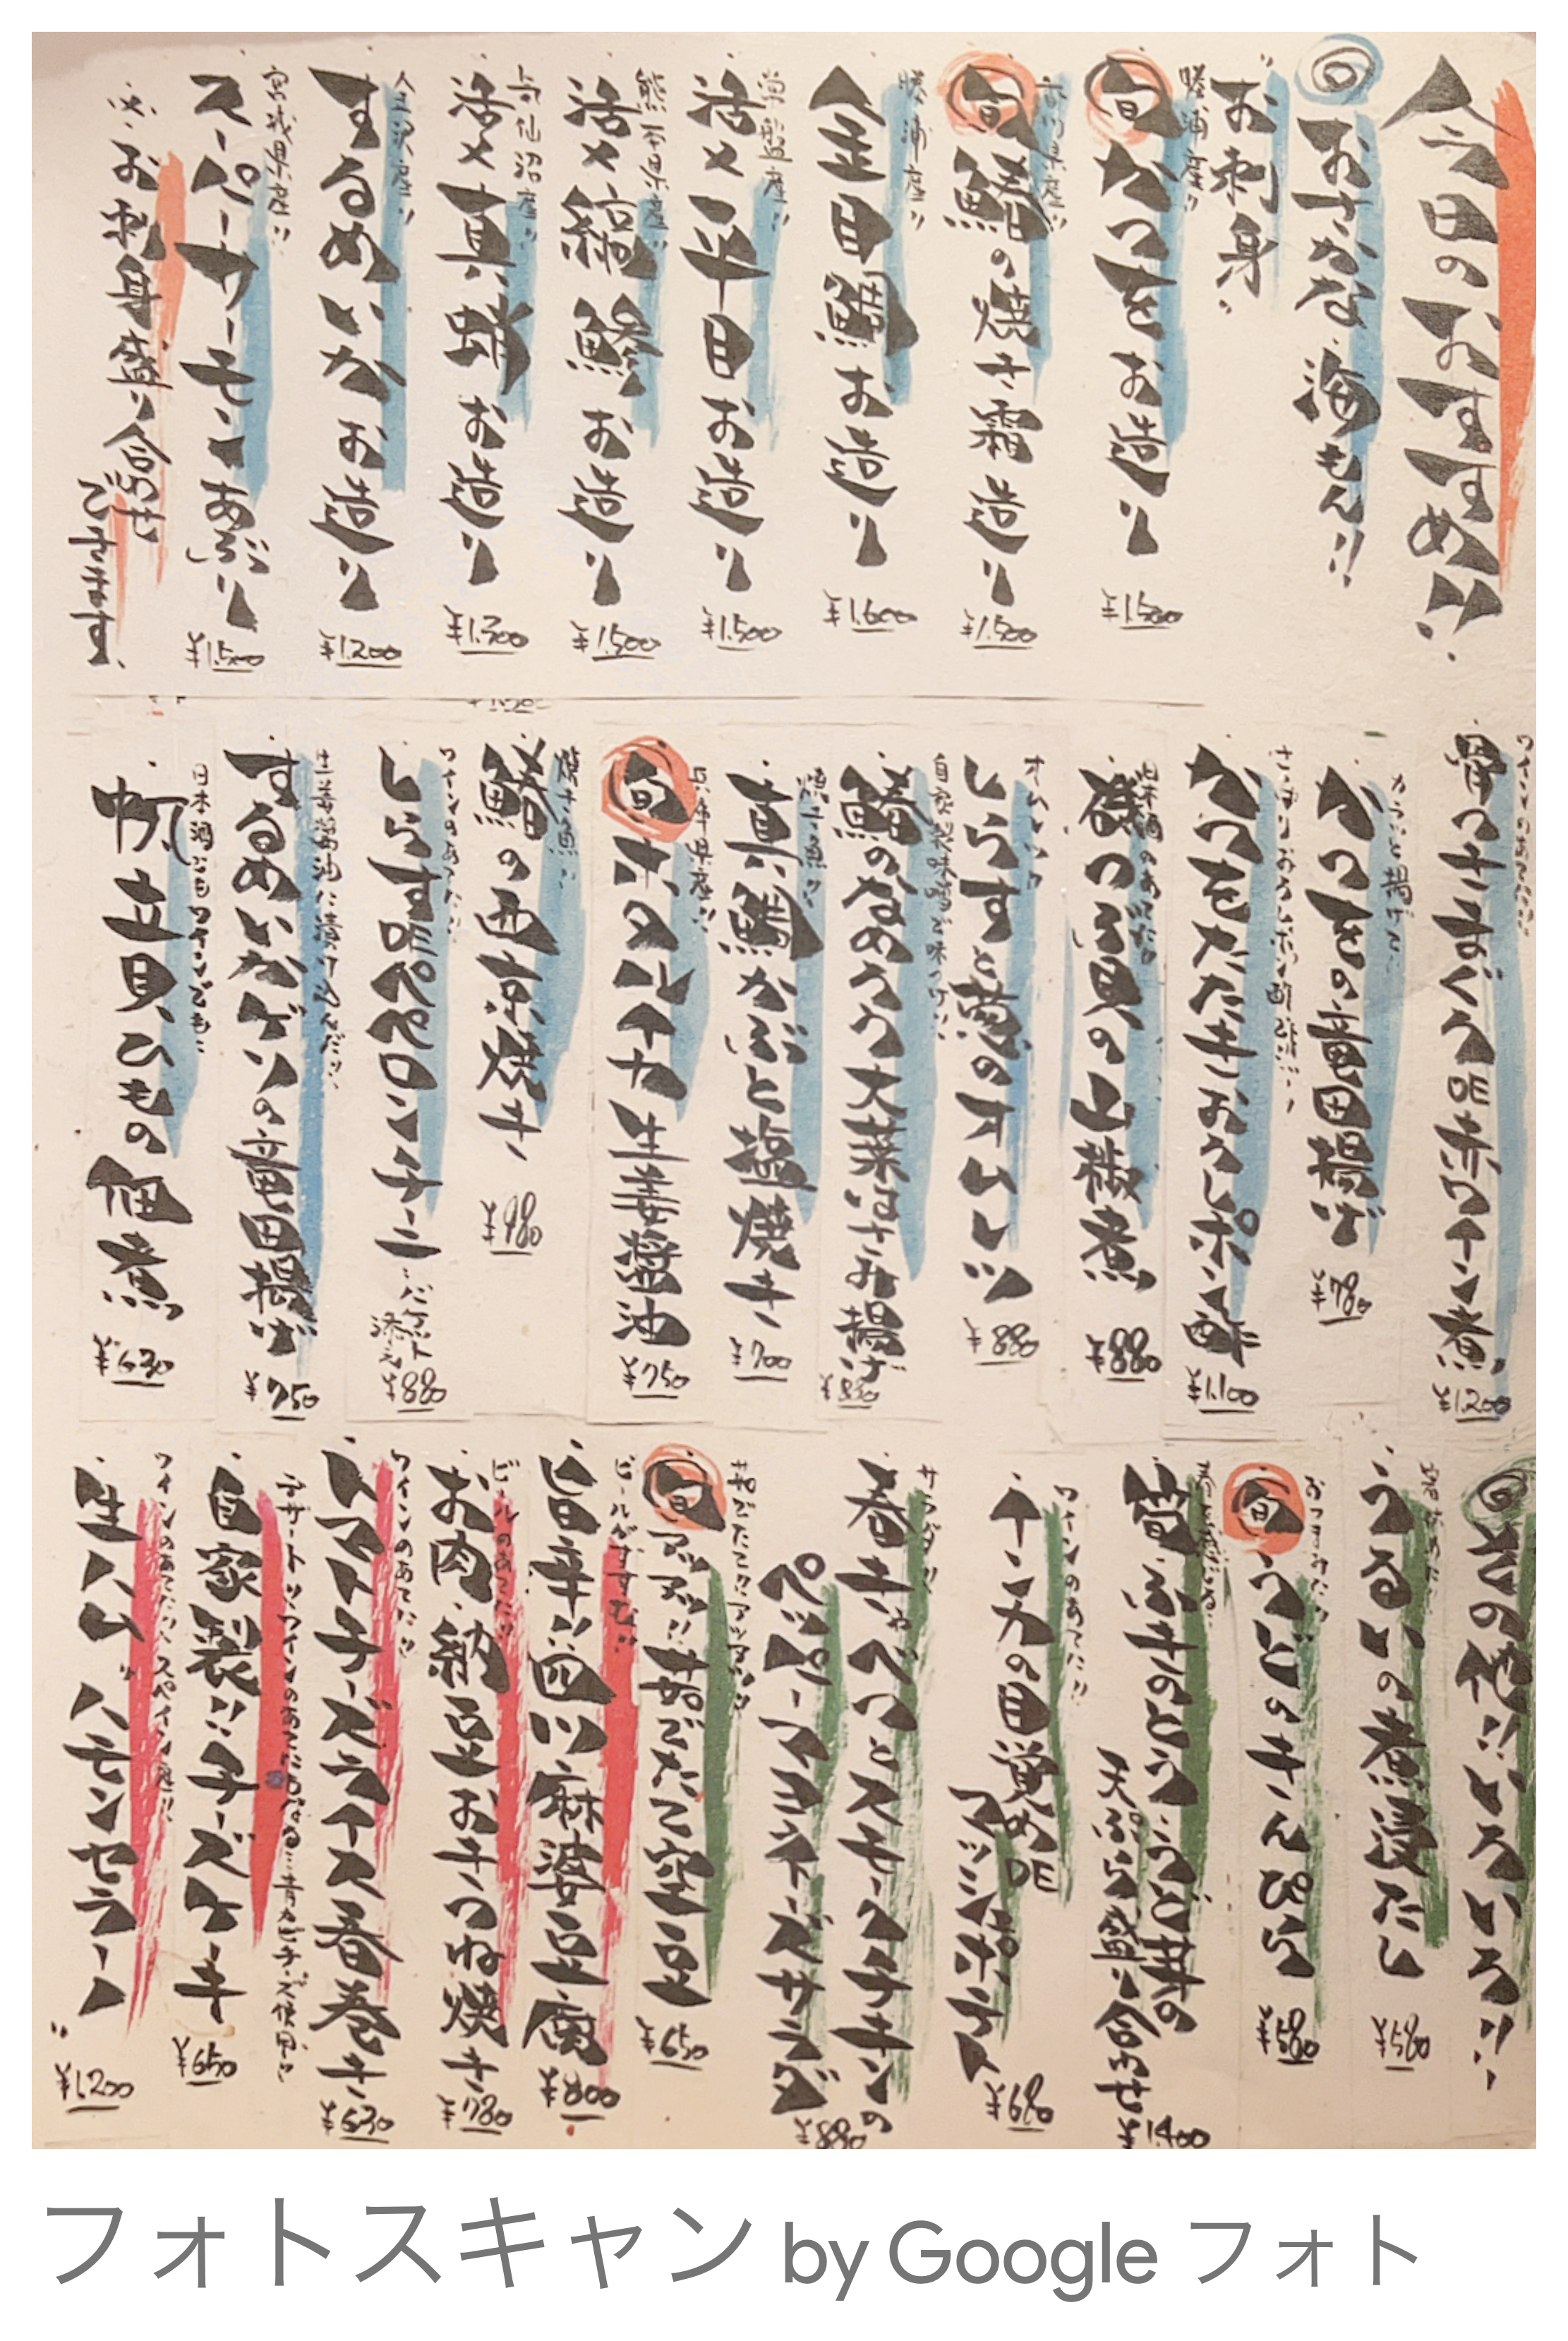 今日のおすすめ!!
おさかな海もん!!
お刺身
勝浦産!!
旬 かつをお造り
¥1.500
旬 鰆の焼き霜造り
¥1.500
勝浦産!!
金目鯛お造り
¥1.600
常盤産!!
活〆平目お造り
¥1.500
熊本県産!!
活〆縞鯵お造り
¥1.500
気仙沼産!!
活〆真蛸お造り
¥1.300
するめいかお造り
¥1.200
宮城県産!!
スーパーサーモンあぶり
¥1.500
お刺身盛り合わせ
できます。
ワインのあてに!!
骨つきまぐろDE赤ワイン煮
¥1.200
カラッと揚げて
かつをの竜田揚げ
¥780
さっぱりおろしポン酢
かつをたたきおろしポン酢
¥1.100
日本酒のあてに
磯つぶ貝の山椒煮
¥880
オムレツ
しらすと葱のオムレツ
¥880
自家製味噌で味つけ
鰆のなめろう大葉はさみ揚げ
¥880
焼き魚!!
真鯛かぶと塩焼き
¥700
兵庫県産!!
旬 ホタルイカ生姜醤油
¥750
焼き魚!!
鰆の西京焼き
¥980
ワインのあてに!!
しらすDEペペロンチーニ
バケット添え
¥880
生姜醤油に漬け込んだ!!
するめいかゲソの竜田揚げ
¥750
日本酒にもワインでも
帆立貝ひもの佃煮
¥630
その他!!いろいろ!!
うるいの煮浸だし
¥580
おつまみに!!
旬 うどのきんぴら
¥580
春を感じる
筍・ふきのとう・うど丼の
天ぷら盛り合わせ
¥1.400
ワインのあてに!!
インカの目覚めDE
アッシュポテト
¥680
サラダ!!
春キャベツとスモークチキンの
ペッパーマヨネーズサラダ
¥880
茹でたてアツアツ!!
旬 アツアツ!!茹でたて空豆
¥650
ビールがすすむ!!
旨辛!!四川麻婆豆腐
¥800
ビールのあてに!!
お肉・納豆お手つね焼き
¥780
ワインのあてに!!
トマトチーズライス春巻き
¥630
デザートに!!ワインのあてにもなる…青カビチーズ使用!!
自家製!!チーズケーキ
¥650
ワインのあてに!!スペイン産!!
生ハム"ハモンセラーノ"
¥1.200
フォトスキャン by Google フォト